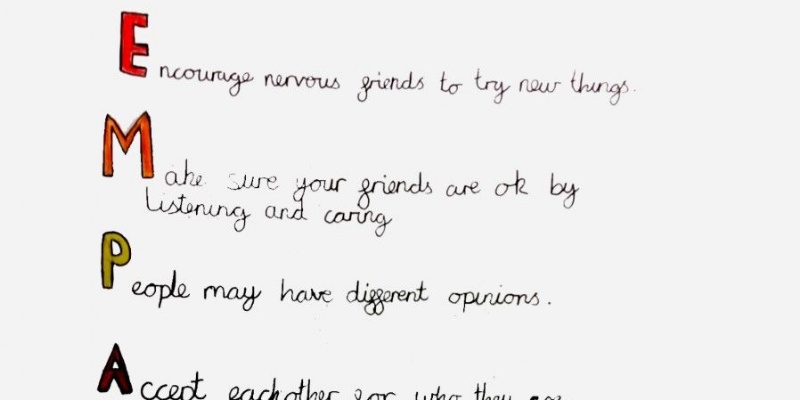 Encourage nervous friends to try new things.
Make sure your friends are ok by
listening and caring
People may have different opinions.
Accept each other for who they are